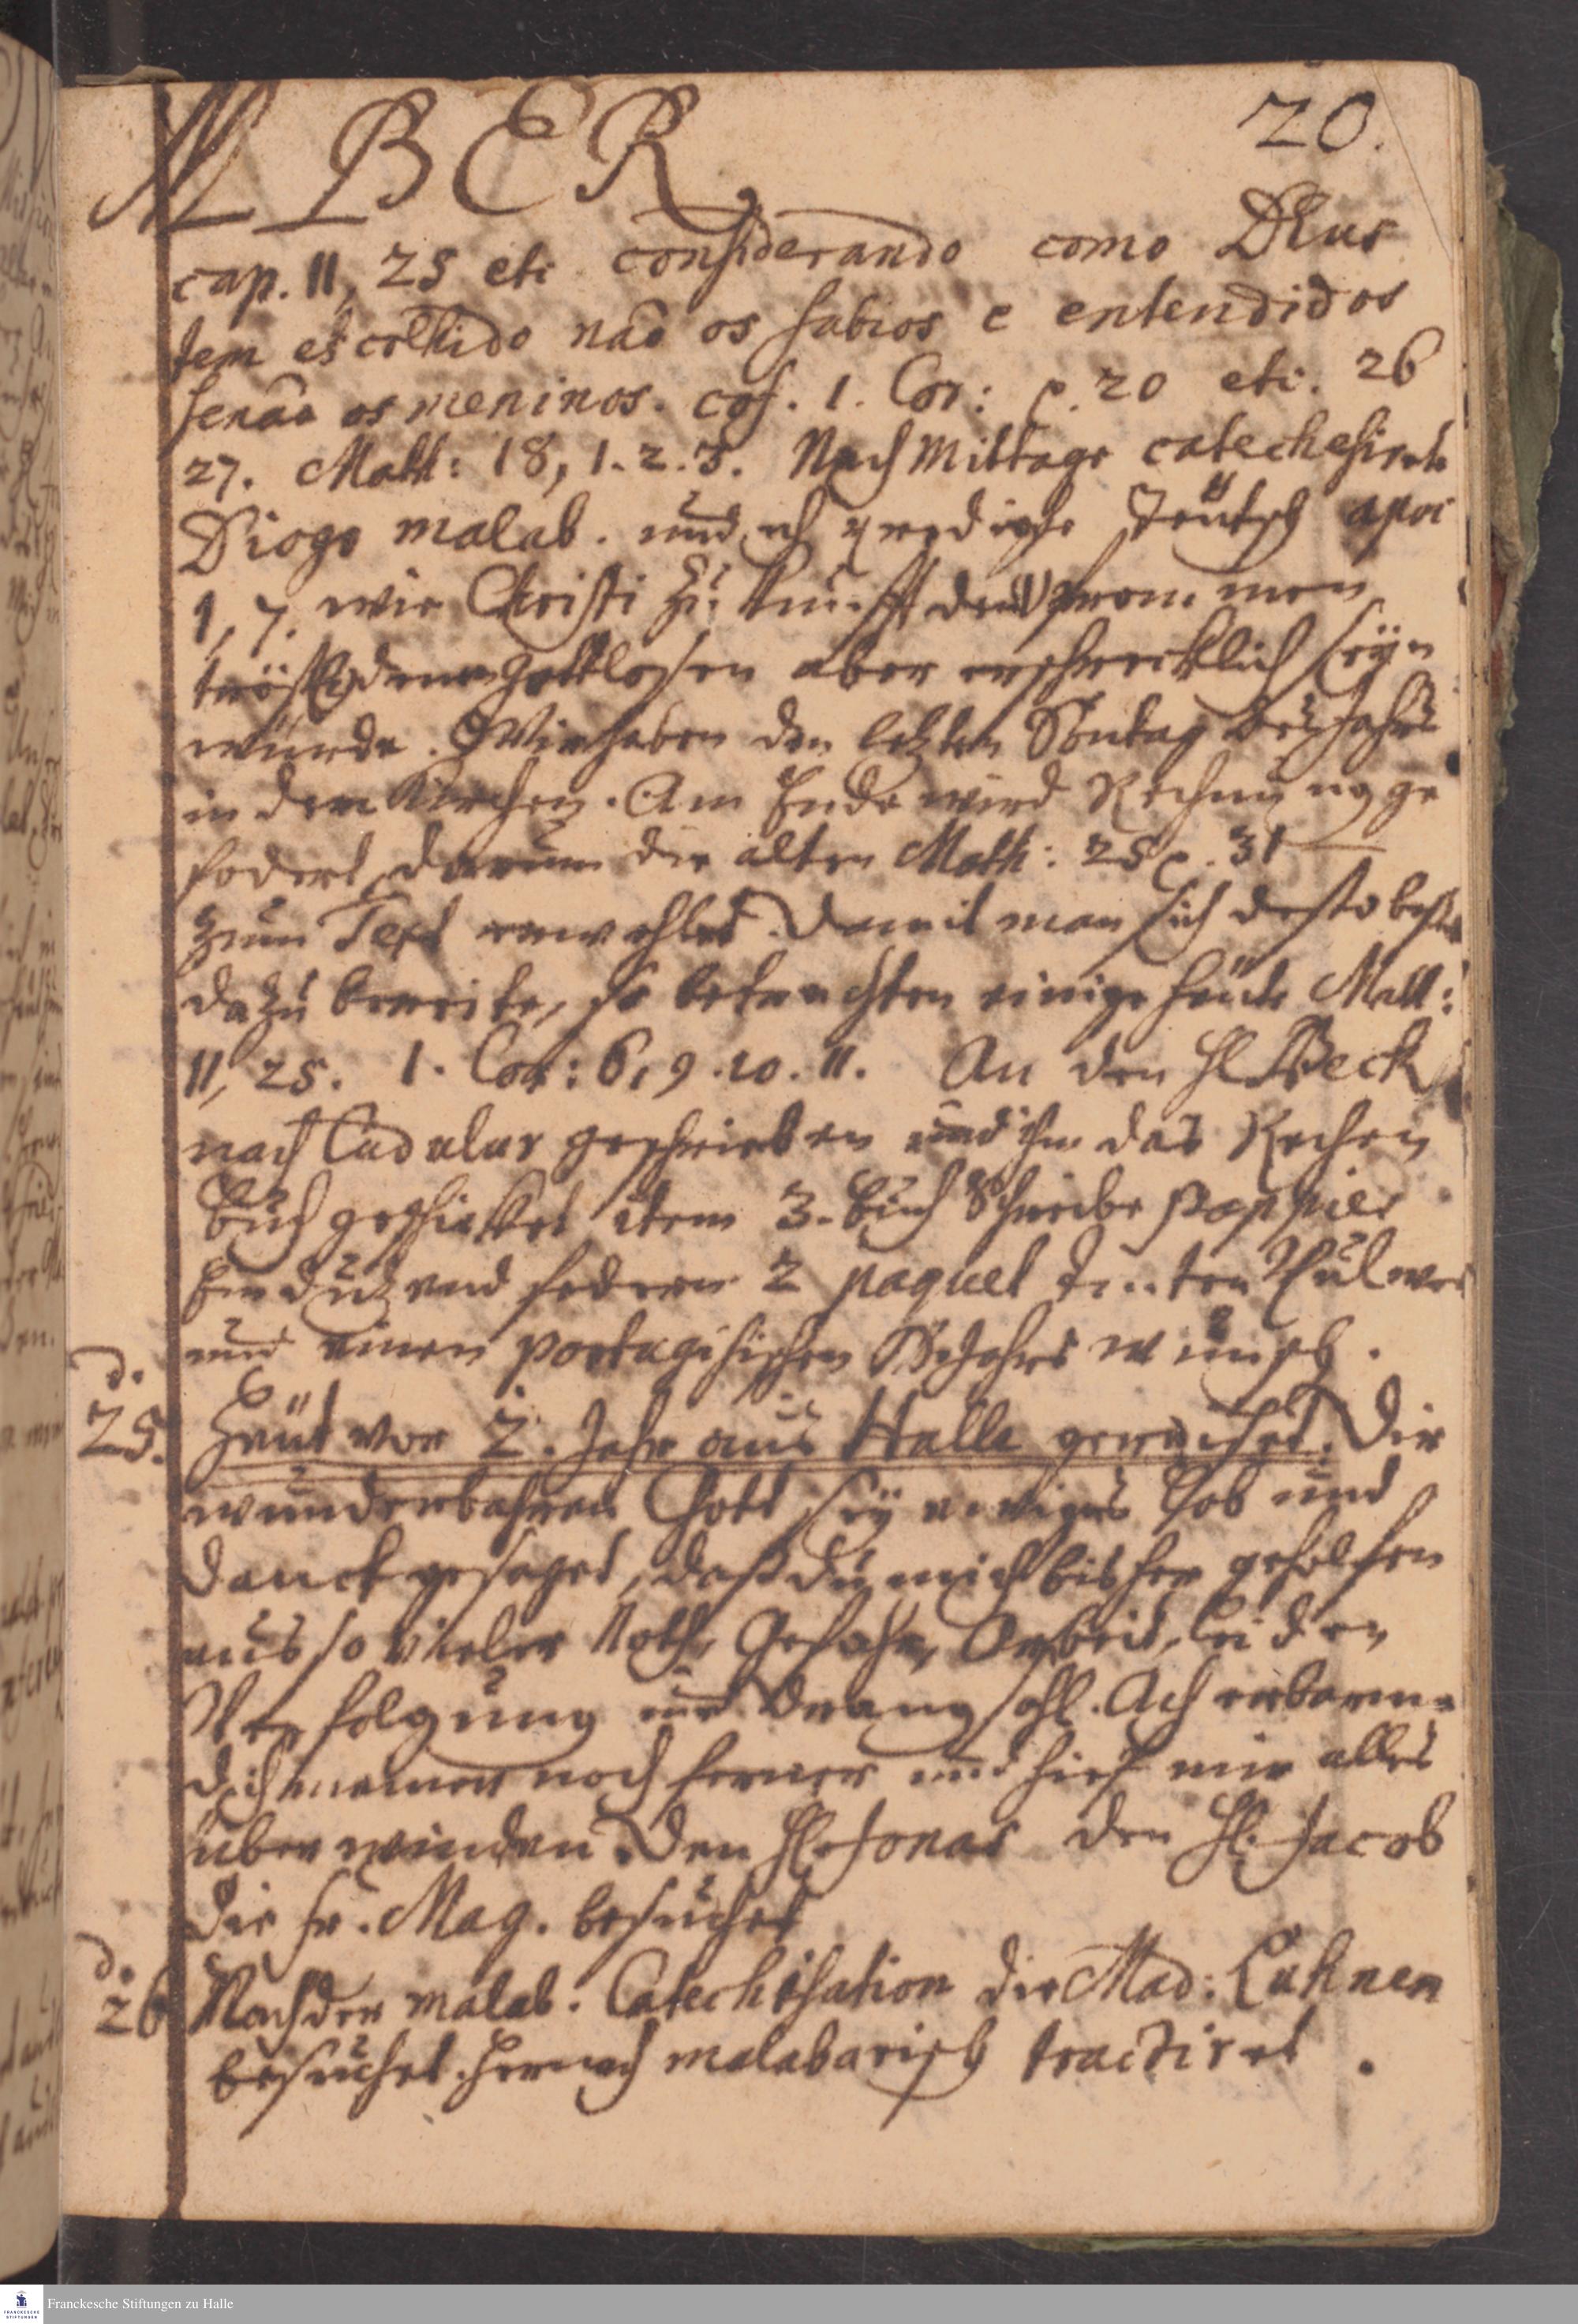 M B E R
20.
cap. 11, 25 etc considerando como DEus
tem escolhido naõ os sabios e entendidos
senaõ os meninos. cof. 1. Cor: c. 20 etc. 26
27. Matth: 18, 1. 2. 3. Nach Mittage catechesirete
Diogo malab. und ich predigte Teütsch apoc
1, 7. wie Christi Zukunfft den frommen
tröstl. denen gottlosen aber erschrecklich seÿn
würde. Wir haben den letzten Sontag des Jahrs
in der Kirchen. Am Ende wird Rechnung ge
fodert, darum die alten Matth: 25 c. 31
zum Text erwehlet. Damit man sich desto besser
dazu bereite, so betrachten einige heüte Matt:
11, 25. 1. Cor: 6, 9. 10. 11. An den H. Beck
nach Cudulur geschrieben und ihm das Rechen
buch geschicket item 3. buch Schreibe Pappier
Ein dutzend federn 2 paquet Tinten Pulver
und einen portugisischen Wunsch.
d.
25. Heüt vor 2. Jahr aus Halle gereiset. Dir
wunderbahren Gott seÿ ewiges Lob und
Danck gesaget, daß du mich bisher geholfen
aus so vieler Noth, Gefahr, Arbeit, Leiden
Verfolgung und Drangsahl. Ach erbarme
dich meiner noch ferner und hilf mir alles
überwinden. Den H. Jonas den H. Jacob
die fr. Mag. besuchet
d.
26 Nach der malab. Catechisation die Mad: Lühnen
besuchet. Hernach malabarisch tractiret.
Franckesche Stiftungen zu Halle